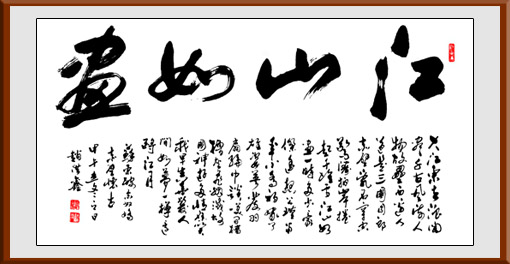 江山如畫
大江东去浪淘
尽千古风流人
物故垒西边人
道是三国周郎
赤壁乱石穿空
惊涛拍岸卷
起千堆雪江山如
画一时多少豪
杰遥想公瑾当
年小乔初嫁了
雄姿英发羽
扇纶巾谈笑间樯
橹灰飞烟灭故
国神游多情应笑
我早生华发人
间如梦一樽还
酹江月
苏东坡念奴娇
赤壁怀古
甲午